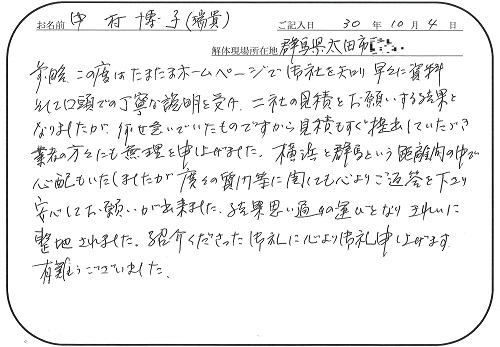 お名前 中村博子(瑞貴) ご記入日 30年10月4日
解体現場所在地 群馬県太田市
前略 この度はたまたまホームページで御社を知り早々に資料
そして口頭での丁寧な説明を受け、二社の見積をお願いする結果と
なりましたが、何せ急いでいたものですから見積もすぐ提出していただき
業者の方々にも無理を申し上げました。横浜と群馬という距離間の中で
心配もいたしましたが度々の質問等に関しても心よりご返答を下さり
安心してお願いが出来ました。結果思い通りの運びとなりきれいに
整地されました。紹介くださった御礼に心より御礼申し上げます。
有難うございました。